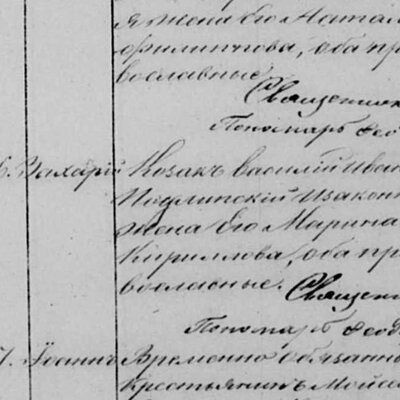 я жена его Натал
Филиппова, оба пр
вославные.
Священник
Пономарь Ѳео
Захарій Козакъ Василій Иван
Подлинскій и законн
жена его Марина
Кириллова, оба пр
вославные. Священн
Пономарь Ѳеод
7. Іоаннъ Временно обязанны
крестьянинъ Мойсе